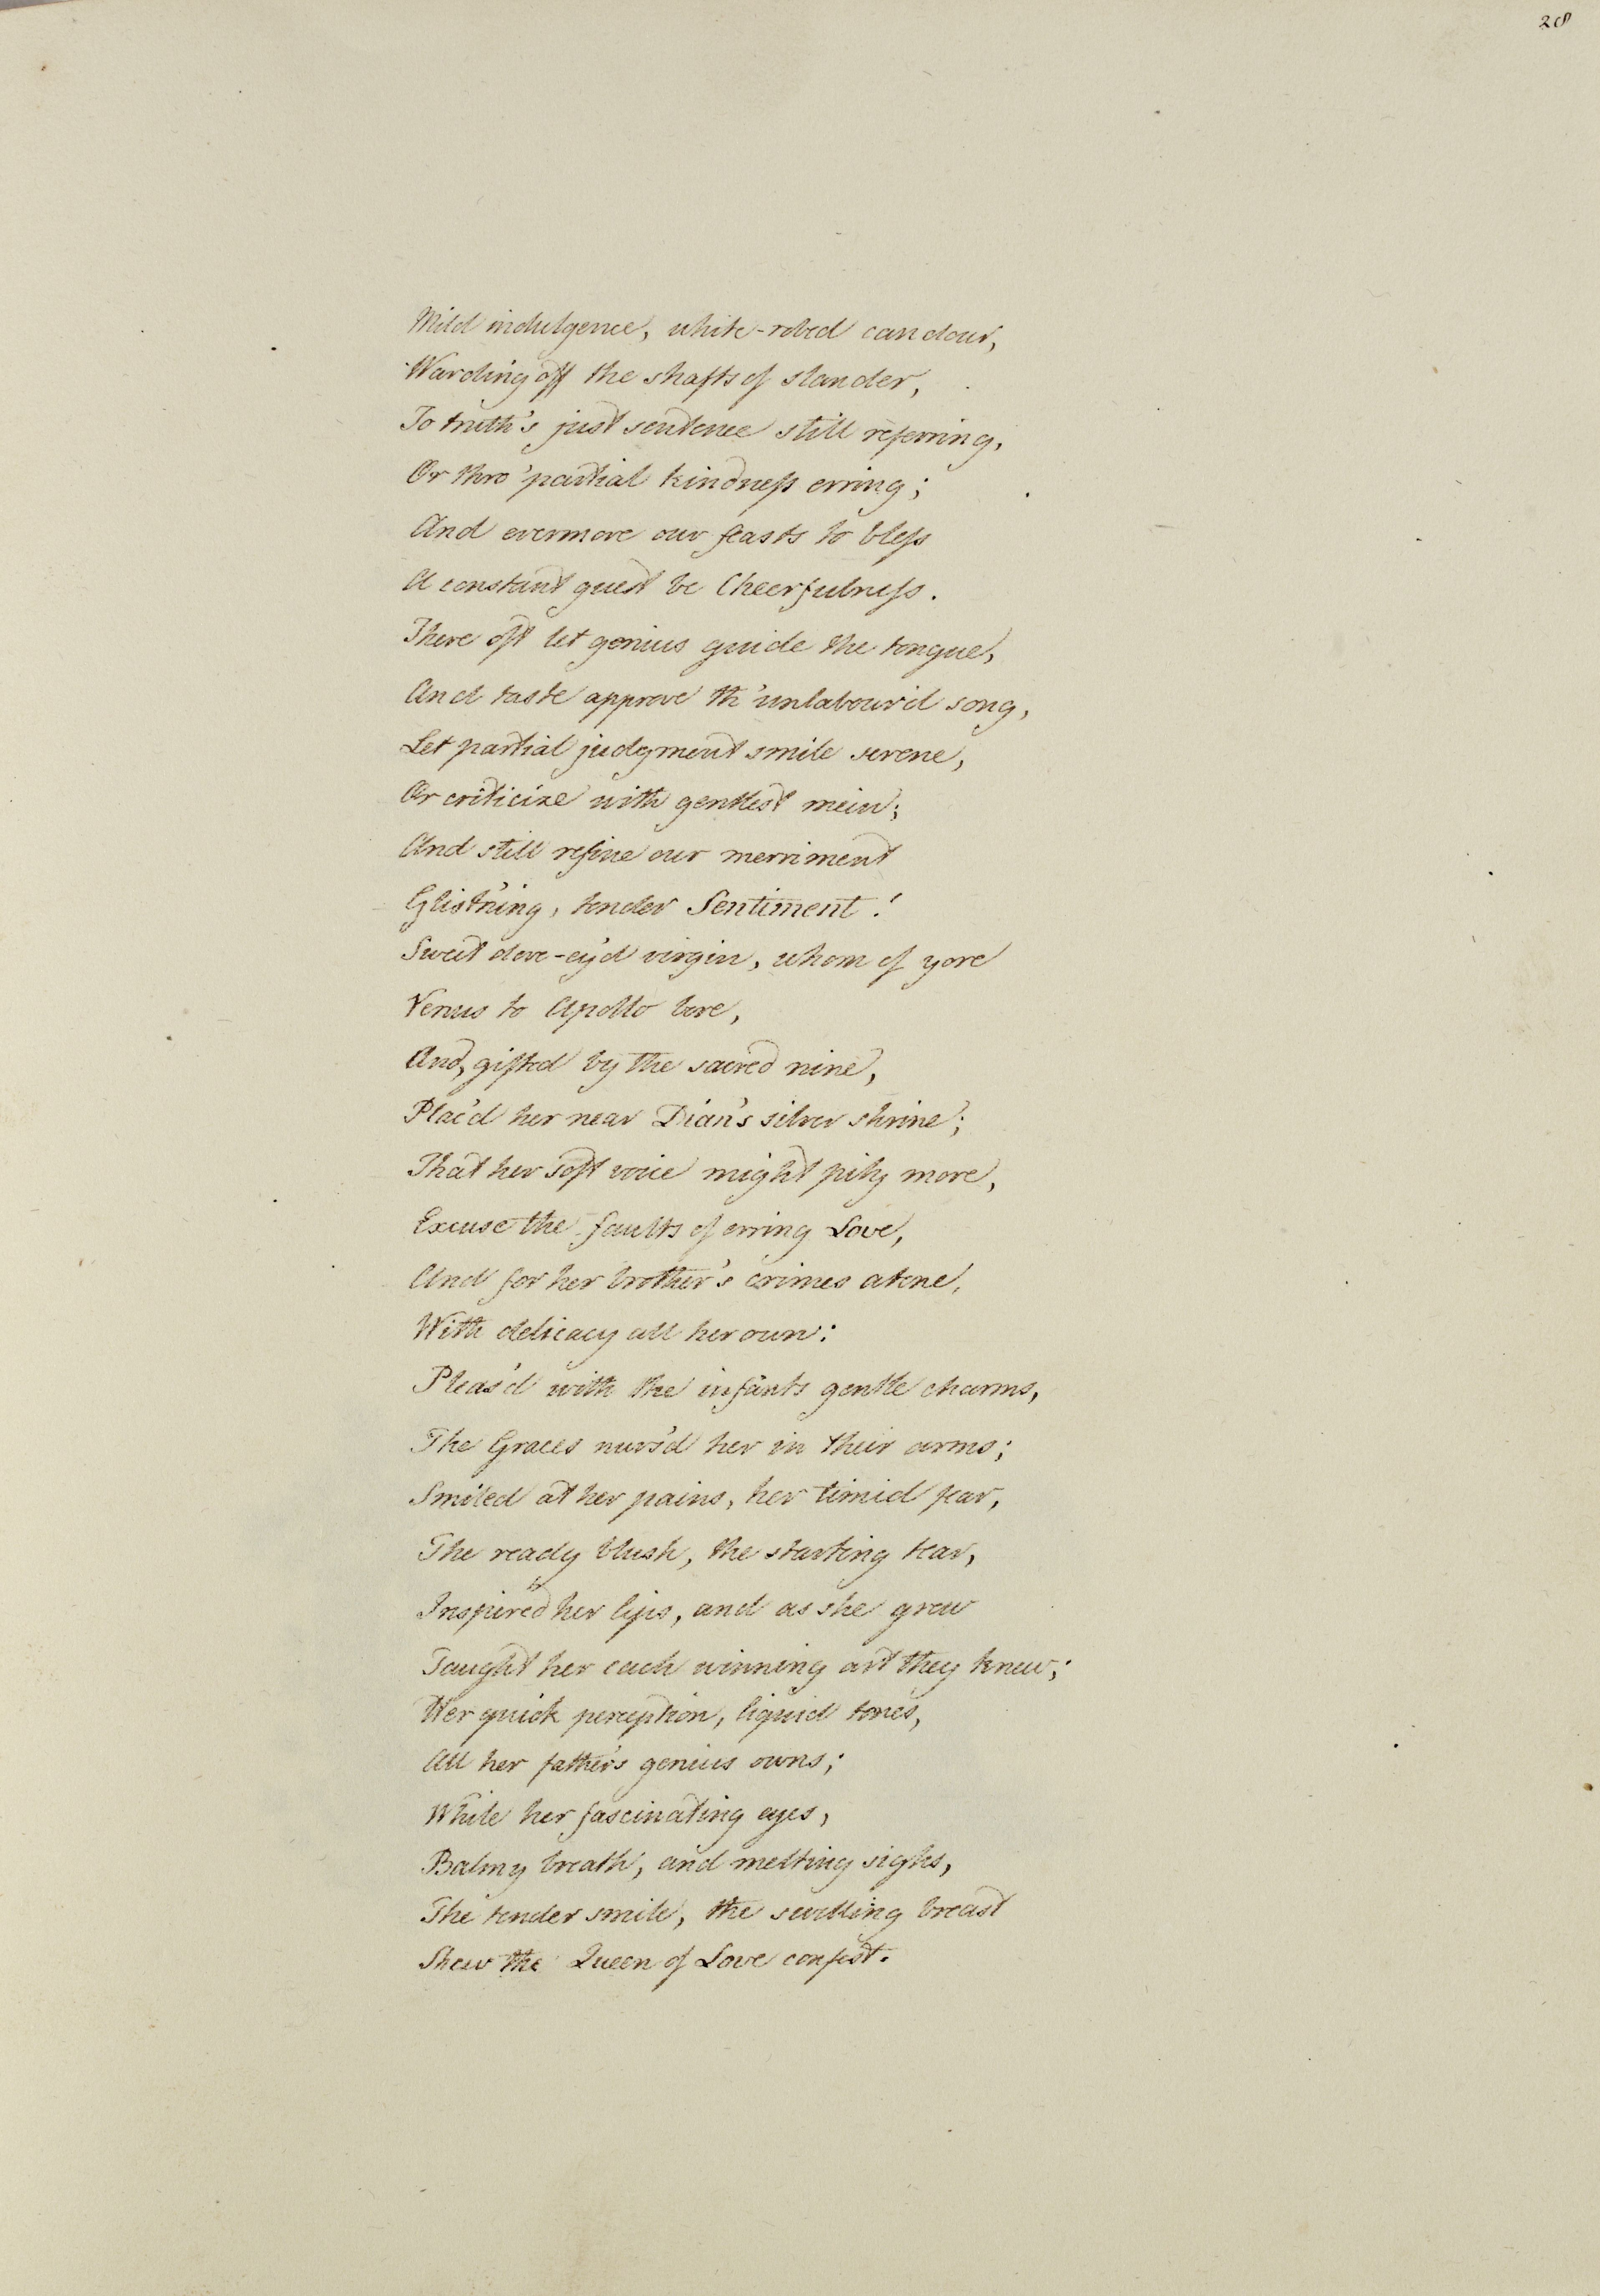 28
Mild indulgence, white-robed candour,
Warding off the shafts of slander,
To truth's just sentence still referring,
Or thro' partial kindneſs erring;
And evermore our feasts to bleſs
A constant guest be Cheerfulneſs.
There oft let genius guide the tongue,
And taste approve th' unlabour'd song,
Let partial judgment smile serene,
Or criticize with gentlest mein;
And still refine our merriment
Glist'ning, tender Sentiment!
Sweet dove-ey'd virgin, whom of yore
Venus to Apollo bore,
And, gifted by the sacred nine,
Plac'd her near Dian's silver shrine;
That her soft voice might pity more,
Excuse the faults of erring Love,
And for her brother's crimes atone,
With delicacy all her own:
Pleas'd with the infants gentle charms,
The Graces nurs'd her in their arms;
Smiled at her pains, her timid fear,
The ready blush, the starting tear,
Inspired her lips, and as she grew
Taught her each winning art they knew;
Her quick perception, liquid tones,
All her father's genius owns;
While her fascinating eyes,
Balmy breath, and melting sighs,
The tender smile, the swelling breast
Shew the Queen of Love confest.